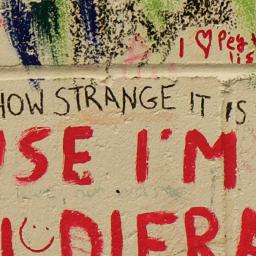 I ♡ Peg
lis
HOW STRANGE IT IS
USE I'M